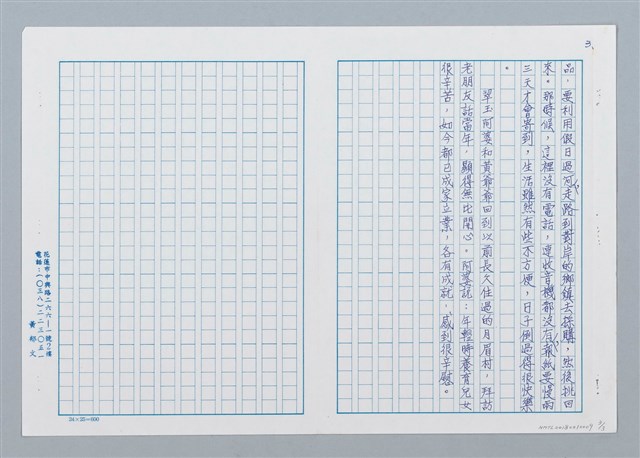 3.
品，要利用假日過河走路到對岸的鄉鎮去採購，然後挑回
來。那時候，這裡沒有電話，連收音機都沒有，報紙要慢兩
三天才會寄到，生活雖然有些不方便，日子倒過得很快樂
。
翠玉阿婆和黃爺爺回到以前長久住過的月眉村，拜訪
老朋友話當年，顯得無比開心。阿婆說：年輕時養育兒女
很辛苦，如今都已成家立業，各有成就，感到很辛慰。
花蓮市中興路二六六—一號2樓
電話：(〇三八)二二三〇五一
黃郁文
24×25=600